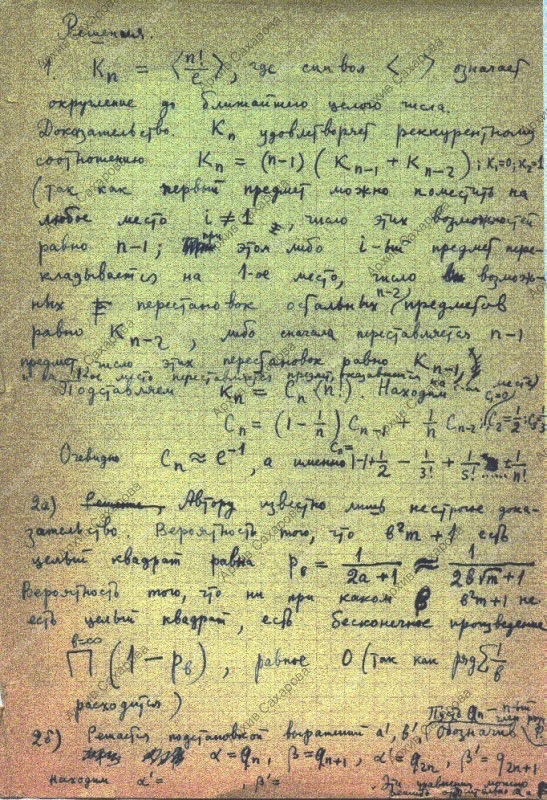 Решения.
1. Kₙ = ⟨n!/e⟩, где символ ⟨ ⟩ означает
округление до ближайшего целого числа.
Доказательство. Kₙ удовлетворяет реккурентному
соотношению Kₙ = (n-1)(Kₙ₋₁ + Kₙ₋₂); K₁=0; K₂=1
(так как первый предмет можно поместить на
любое место i ≠ 1, число этих возможностей
равно n-1; при этом либо i-ый предмет пере-
кладывается на 1-ое место, число возмож-
ных перестановок остальных n-2 предметов
равно Kₙ₋₂, либо сначала переставляется n-1
предмет, число этих перестановок равно Kₙ₋₁,
Подставляем Kₙ = Cₙ (n!). Находим
Cₙ = (1 - 1/n) Cₙ₋₁ + 1/n Cₙ₋₂
Очевидно Cₙ ≈ e⁻¹, а именно Cₙ = 1-1+1/2 - 1/3! + 1/n!
2а) Автору известно лишь нестрогое дока-
зательство. Вероятность того, что b²m + 1 есть
целый квадрат равна p_b = 1/(2a+1) ≈ 1/(2b√m+1)
Вероятность того, что ни при каком b b²m+1 не
есть целый квадрат, есть бесконечное произведение
∏ (1 - p_b), равное 0 (так как ряд Σ 1/b
расходится)
2б) Решается подстановкой выражений a', b'. Обозначив
α = qₙ, β = qₙ₊₁, α' = q₂ₙ, β' = q₂ₙ₊₁
находим α' = , β' = . Эти уравнения можно
Архив Сахарова